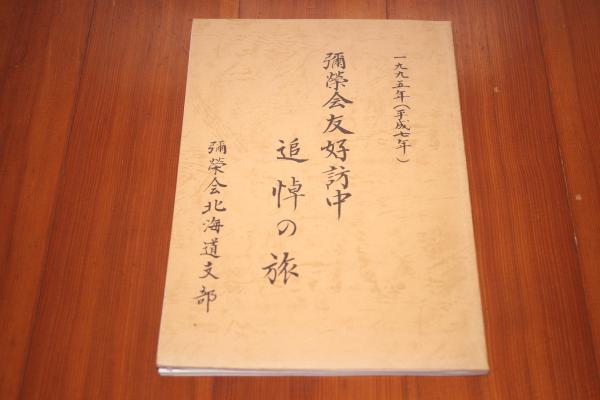 一九九五年(平成七年)
彌榮会友好訪中
追悼の旅
彌榮会北海道支部